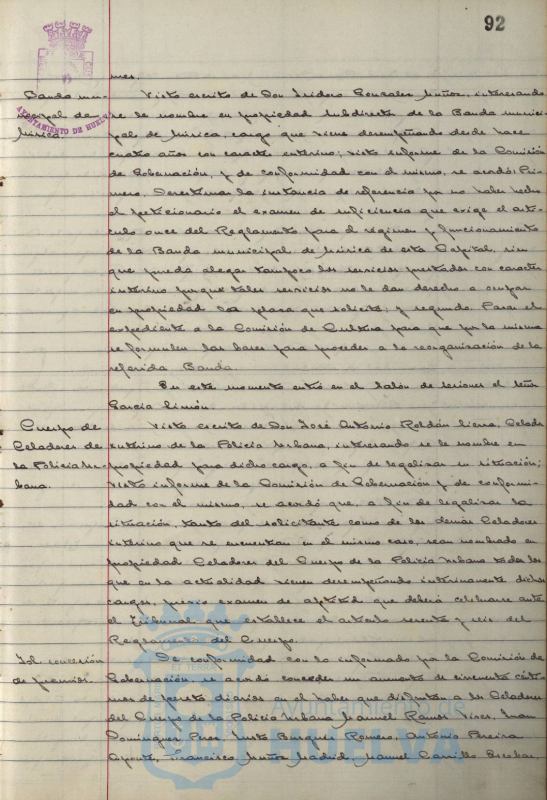 92
AYUNTAMIENTO DE HUELVA
mes.
Banda mu-
nicipal de
Música.
Visto escrito de Don Isidoro Gonzalez Muñoz, interesando
se le nombre en propiedad Subdirector de la Banda munici-
pal de Música, cargo que viene desempeñando desde hace
cuatro años con caracter interino; visto informe de la Comisión
de Gobernación, y de conformidad con el mismo, se acordó: Pri-
mero. Desestimar la instancia de referencia por no haber hecho
el peticionario el examen de suficiencia que exige el artí-
culo once del Reglamento para el régimen y funcionamiento
de la Banda municipal de Música de esta Capital, sin
que pueda alegar tampoco los servicios prestados con caracter
interino porque tales servicios no le dan derecho a ocupar
en propiedad la plaza que solicita; y segundo. Pasar el
expediente a la Comisión de Cultura para que por la misma
se formulen las bases para proceder a la reorganización de la
referida Banda.
En este momento entró en el Salón de sesiones el señor
García Limón.
Cuerpo de
Celadores de
la Policía Ur-
bana.
Visto escrito de Don José Antonio Roldán Sierra, Celador
interino de la Policía Urbana, interesando se le nombre en
propiedad para dicho cargo, a fin de legalizar su situación;
visto informe de la Comisión de Gobernación y de conformi-
dad con el mismo, se acordó que, a fin de legalizar la
situación, tanto del solicitante como de los demás Celadores
interino que se encuentran en el mismo caso, sean nombrado en
propiedad Celadores del Cuerpo de la Policía Urbana todos los
que en la actualidad vienen desempeñando interinamente dichos
cargos, previo examen de aptitud que deberá celebrarse ante
el Tribunal que establece el artículo sesenta y seis del
Reglamento del Cuerpo.
Id. concesión
de premios.
De conformidad con lo informado por la Comisión de
Gobernación, se acordó conceder un aumento de cincuenta cénti-
mos de peseta diarios en el haber que disfrutan a los Celadores
del Cuerpo de la Policía Urbana Manuel Ramos Vives, Juan
Dominguez Perez, Justo Barquez Romero, Antonio Pereira
Aponte, Francisco Muñoz Madrid, Manuel Carrillo Escobar,
Ayuntamiento de
HUELVA